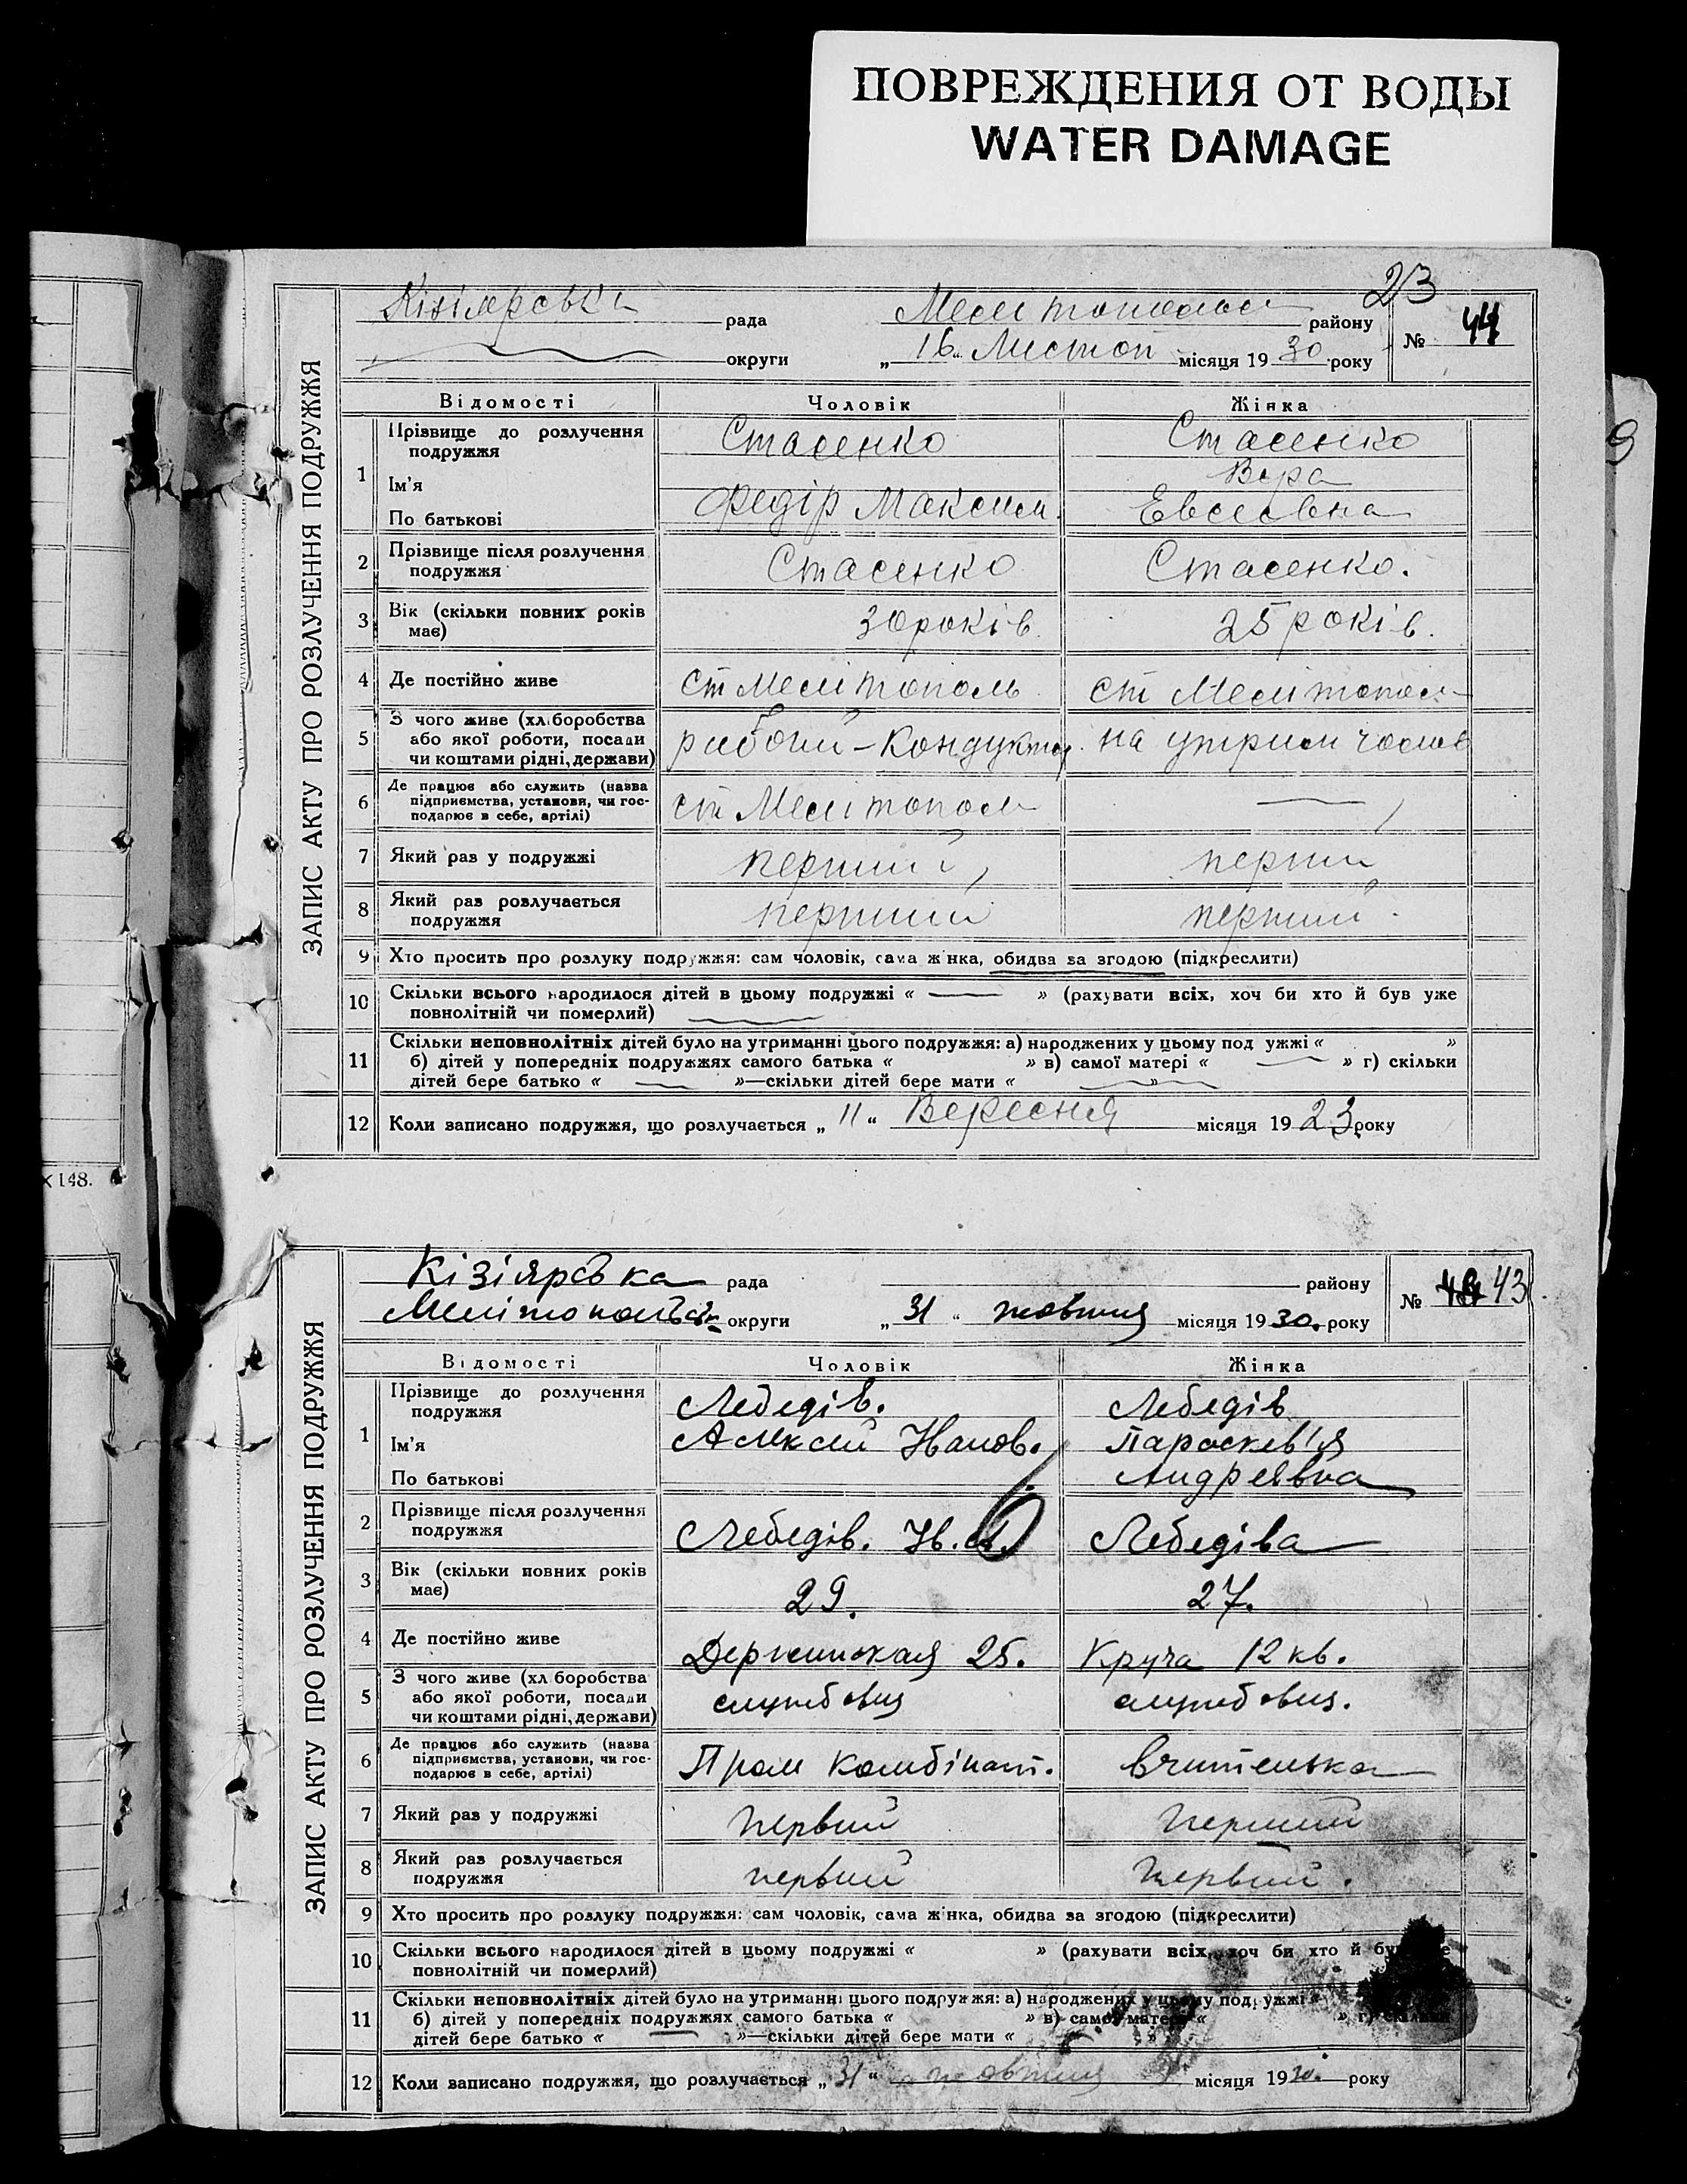 ПОВРЕЖДЕНИЯ ОТ ВОДЫ
WATER DAMAGE
23
рада Мелітопольськ району № 44
округи „ 16 " Листоп місяця 19 30 року
ЗАПИС АКТУ ПРО РОЗЛУЧЕННЯ ПОДРУЖЖЯ
Відомості Чоловік Жінка
1 Прізвище до розлучення подружжя Стасенко Стасенко
Ім'я Вера
По батькові Федір Максим. Евсеевна
2 Прізвище після розлучення подружжя Стасенко Стасенко.
3 Вік (скільки повних років має) 30 років. 25 років.
4 Де постійно живе ст Мелітополь ст Мелітополь
5 З чого живе (хліборобства або якої роботи, посади чи коштами рідні, держави) рабочий – Кондуктор. на утрим чолов
6 Де працює або служить (назва підприємства, установи, чи господарює в себе, артілі) ст Мелітополь —
7 Який раз у подружжі перший перший
8 Який раз розлучається подружжя перший перший
9 Хто просить про розлуку подружжя: сам чоловік, сама жінка, обидва за згодою (підкреслити)
10 Скільки всього народилося дітей в цьому подружжі « — » (рахувати всіх, хоч би хто й був уже
повнолітній чи померлий)
11 Скільки неповнолітніх дітей було на утриманні цього подружжя: а) народжених у цьому подружжі « »
б) дітей у попередніх подружжях самого батька « » в) самої матері « — » г) скільки
дітей бере батько « — »—скільки дітей бере мати « — »
12 Коли записано подружжя, що розлучається „ 11 " Вересня місяця 19 23 року
х148.
Кізіярська рада району № 43
Мелітопольськ округи „ 31 " жовтня місяця 19 30. року
ЗАПИС АКТУ ПРО РОЗЛУЧЕННЯ ПОДРУЖЖЯ
Відомості Чоловік Жінка
1 Прізвище до розлучення подружжя Лебедів. Лебедів
Ім'я Алексій Иванов. Параскев'я
По батькові Андреявна
2 Прізвище після розлучення подружжя Лебедів. Лебедіва
3 Вік (скільки повних років має) 29. 27.
4 Де постійно живе 25. Круча 12 кв.
5 З чого живе (хліборобства або якої роботи, посади чи коштами рідні, держави) службовця службовця.
6 Де працює або служить (назва підприємства, установи, чи господарює в себе, артілі) Пром комбінат. вчителька
7 Який раз у подружжі первий перший
8 Який раз розлучається подружжя первий первий.
9 Хто просить про розлуку подружжя: сам чоловік, сама жінка, обидва за згодою (підкреслити)
10 Скільки всього народилося дітей в цьому подружжі « » (рахувати всіх, хоч би хто й був уже
повнолітній чи померлий)
11 Скільки неповнолітніх дітей було на утриманні цього подружжя: а) народжених у цьому подружжі «
б) дітей у попередніх подружжях самого батька « » в) самої матері « » г) скільки
дітей бере батько « — »—скільки дітей бере мати « »
12 Коли записано подружжя, що розлучається „ 31 " жовтня місяця 19 30. року